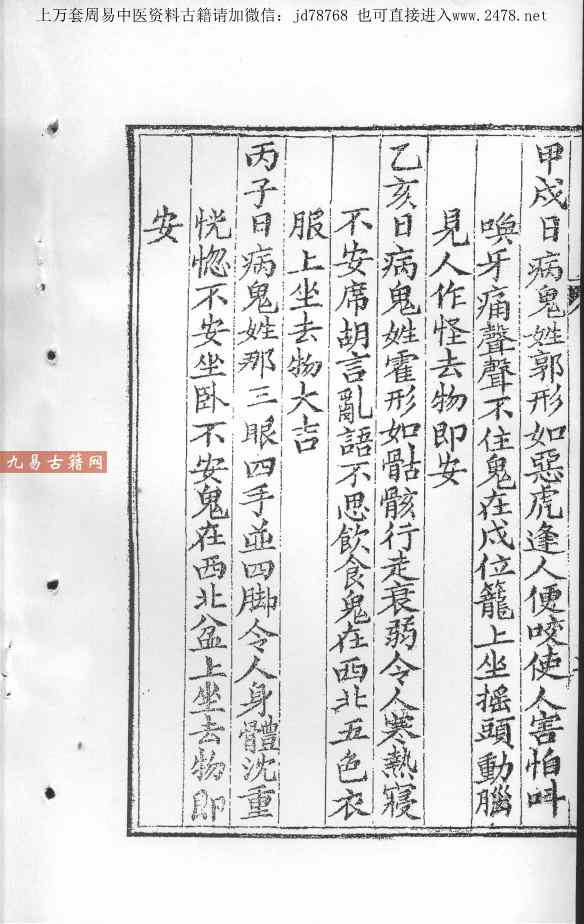 上万套周易中医资料古籍请加微信：jd78768 也可直接进入www.2478.net
甲戍日病鬼姓郭形如惡虎逢人便咬使人害怕叫
喚牙痛聲聲不住鬼在戍位籠上坐摇頭動腦
見人作怪去物即安
乙亥日病鬼姓霍形如骷骸行走衰弱令人寒熱寢
不安席胡言亂語不思飲食鬼在西北五色衣
服上坐去物大吉
丙子日病鬼姓那三眼四手並四脚令人身體沈重
恍惚不安坐卧不安鬼在西北盆上坐去物即
安
九易古籍网